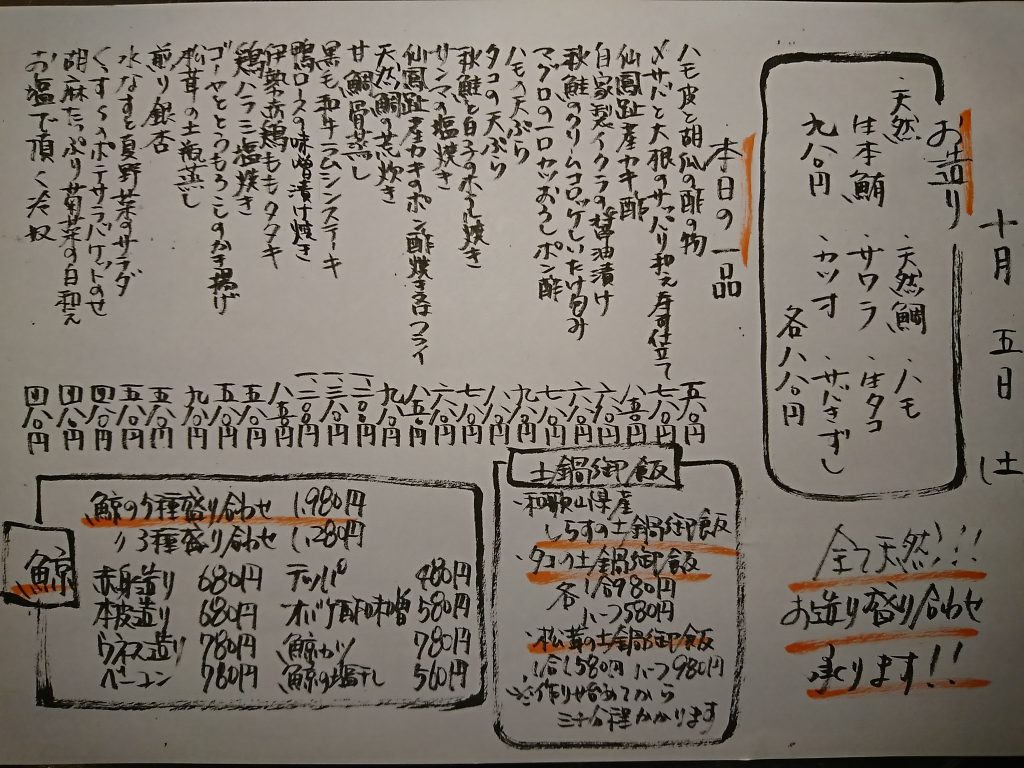 十月 五日 (土
お造り
・天然
生本鮪
九八〇円
・天然鯛
・サワラ
・カツオ
・ハモ
・生タコ
・サバきずし
各八八〇円
全て天然!!!
お造り盛り合わせ
承ります!!
本日の一品
ハモ皮と胡瓜の酢の物 五八〇円
〆サバと大根のサッパリ和え寿司仕立て
仙鳳趾産カキ酢
自家製イクラの醤油漬け
秋鮭のクリームコロッケしいたけ包み
マグロの一口カツおろしポン酢
ハモの天ぷら
タコの天ぷら
秋鮭と白子のホイル焼き
サンマの塩焼き
仙鳳趾産カキのポン酢焼き又はフライ
天然鯛の荒炊き
甘鯛骨蒸し
黒毛和牛ラムシンステーキ
鴨ロースの味噌漬け焼き
伊勢赤鶏ももタタキ
鶏ハラミ塩焼き
ゴーヤととうもろこしのかき揚げ
松茸の土瓶蒸し 九八〇円
煎り銀杏 五八〇円
水なすと夏野菜のサラダ 五八〇円
くずし ポテサラバケットのせ 四八〇円
胡麻たっぷり菊菜の白和え 四八〇円
お塩で頂く冷奴 四八〇円
土鍋御飯
・和歌山県産
しらすの土鍋御飯
・タコの土鍋御飯
各 1合980円
ハーフ580円
・松茸の土鍋御飯
1合1,580円 ハーフ980円
※作り始めてから
三十分程かかります
鯨
鯨の5種盛り合わせ 1,980円
〃3種盛り合わせ 1,280円
赤身造り 680円
本皮造り 680円
ウネス造り 780円
ベーコン 780円
テッパ 480円
オバケ酢味噌 580円
鯨カツ 780円
鯨の塩干し 560円